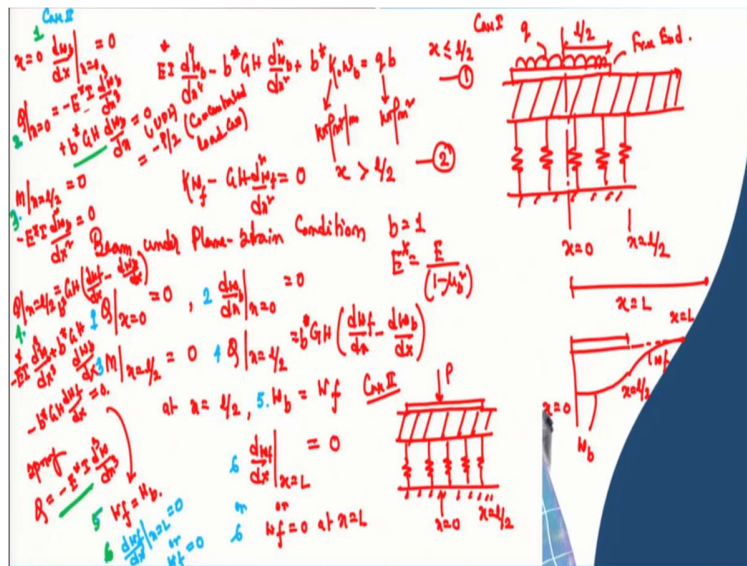 Case II
1
x=0 dw_b/dx|_{x=0} = 0
Q|_{x=0} = -E*I d³w_b/dx³
2 + b*GH dw_b/dx = 0 (UDL)
= -P/2 (Concentrated Load Case)
M|_{x=l/2} = 0
3. -E*I d²w_b/dx² = 0
Q|_{x=l/2} = b*GH (dw_f/dx - dw_b/dx)
4. -E*I d³w_b/dx³ + b*GH dw_b/dx
- b*GH dw_f/dx = 0.
Q = -E*I d³w/dx³
5 w_f = w_b.
6 dw_f/dx|_{x=L} = 0
or
w_f = 0
E*I d⁴w_b/dx⁴ - b*GH d²w_b/dx² + b*K.w_b = qb x ≤ l/2
①
kN/m²/m kN/m²
Kw_f - GH d²w_f/dx² = 0 x > l/2 ②
Beam under Plane-strain Condition b=1
E* = E/(1-μ_b²)
1 Q|_{x=0} = 0, 2 dw_b/dx|_{x=0} = 0
3 M|_{x=l/2} = 0 4 Q|_{x=l/2} = b*GH (dw_f/dx - dw_b/dx)
at x = l/2, 5. w_b = w_f
6 dw_f/dx|_{x=L} = 0
or
6 w_f = 0 at x=L
Case I
q
l/2
Free End.
x=0
x=l/2
x=L
x=L
w_f
x=0
x=l/2
w_b
Case II
P
x=0
x=l/2